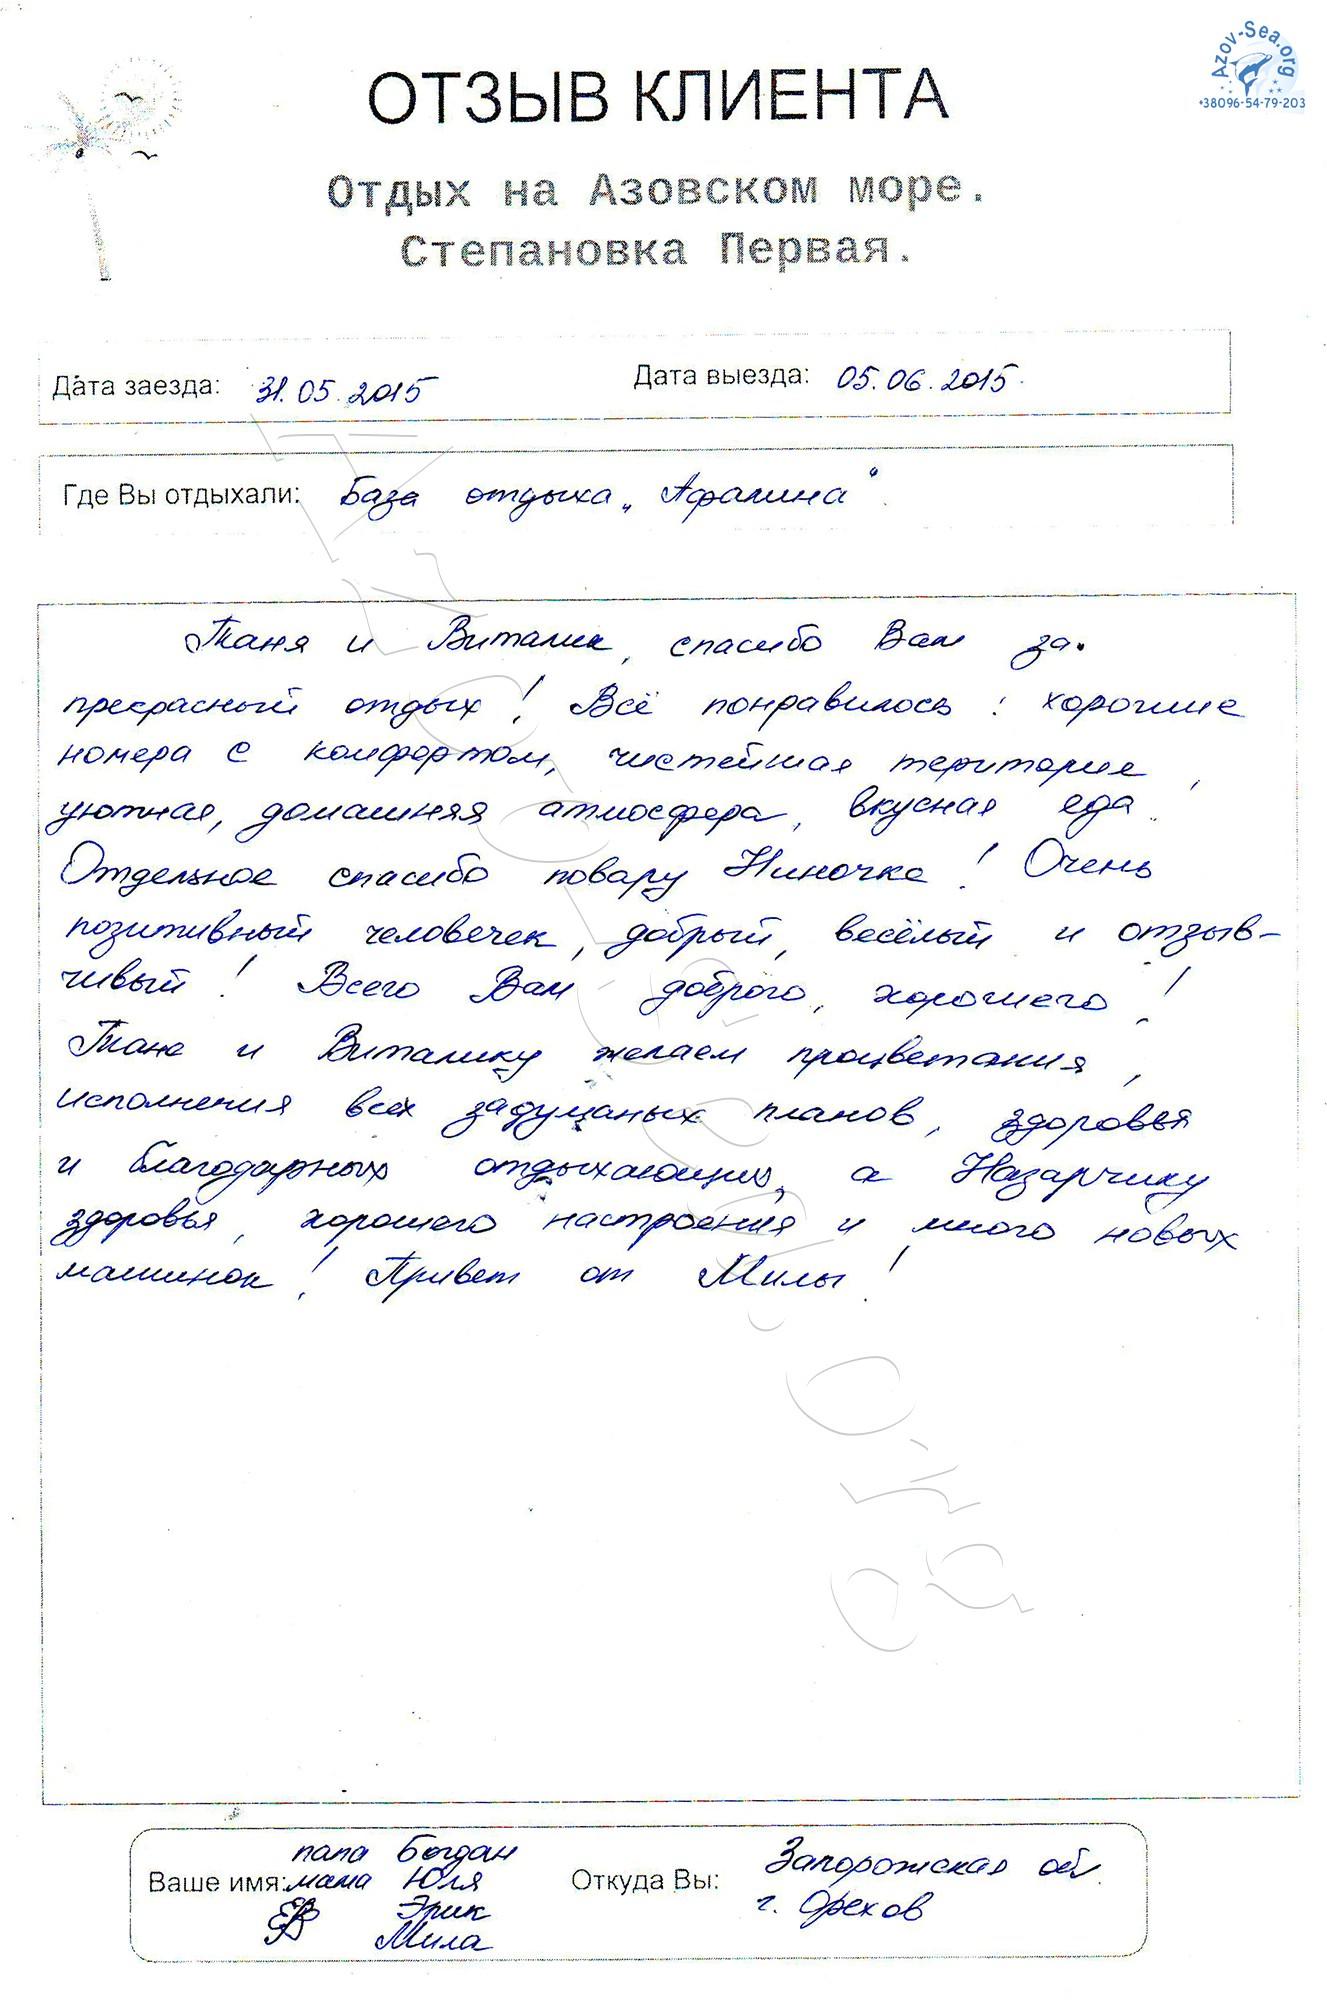 Azov-Sea.org
+38096-54-79-203
ОТЗЫВ КЛИЕНТА
Отдых на Азовском море.
Степановка Первая.
Дата заезда: 31.05.2015 Дата выезда: 05.06.2015.
Где Вы отдыхали: База отдыха „Афалина“.
Таня и Виталик, спасибо Вам за
прекрасный отдых! Всё понравилось: хорошие
номера с комфортом, чистейшая територия,
уютная, домашняя атмосфера, вкусная еда.
Отдельное спасибо повару Ниночке! Очень
позитивный человечек, добрый, весёлый и отзыв-
чивый! Всего Вам доброго, хорошего!
Тане и Виталику желаем процветания,
исполнения всех задуманых планов, здоровья
и благодарных отдыхающих, а Назарчику
здоровья, хорошего настроения и много новых
машинок! Привет от Милы!
Ваше имя: папа Богдан
мама Юля
Эрик
Мила
Откуда Вы: Запорожская обл.
г. Орехов